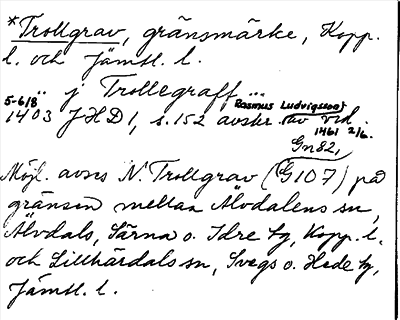 *Trollgrav, gränsmärke, Kopp.
l. och Jämtl. l.
... j Trollegraff ...
5-6/8 Rasmus Ludvigsson
1403 JHD 1, s. 152 avskr. av vid.
1461 2/6.
Gn82,
Möjl. avses N. Trollgrav (G107) på
gränsen mellan Älvdalens sn,
Älvdals, Särna o. Idre tg, Kopp. l.
och Lillhärdals sn, Svegs o. Hede tg,
Jämtl. l.